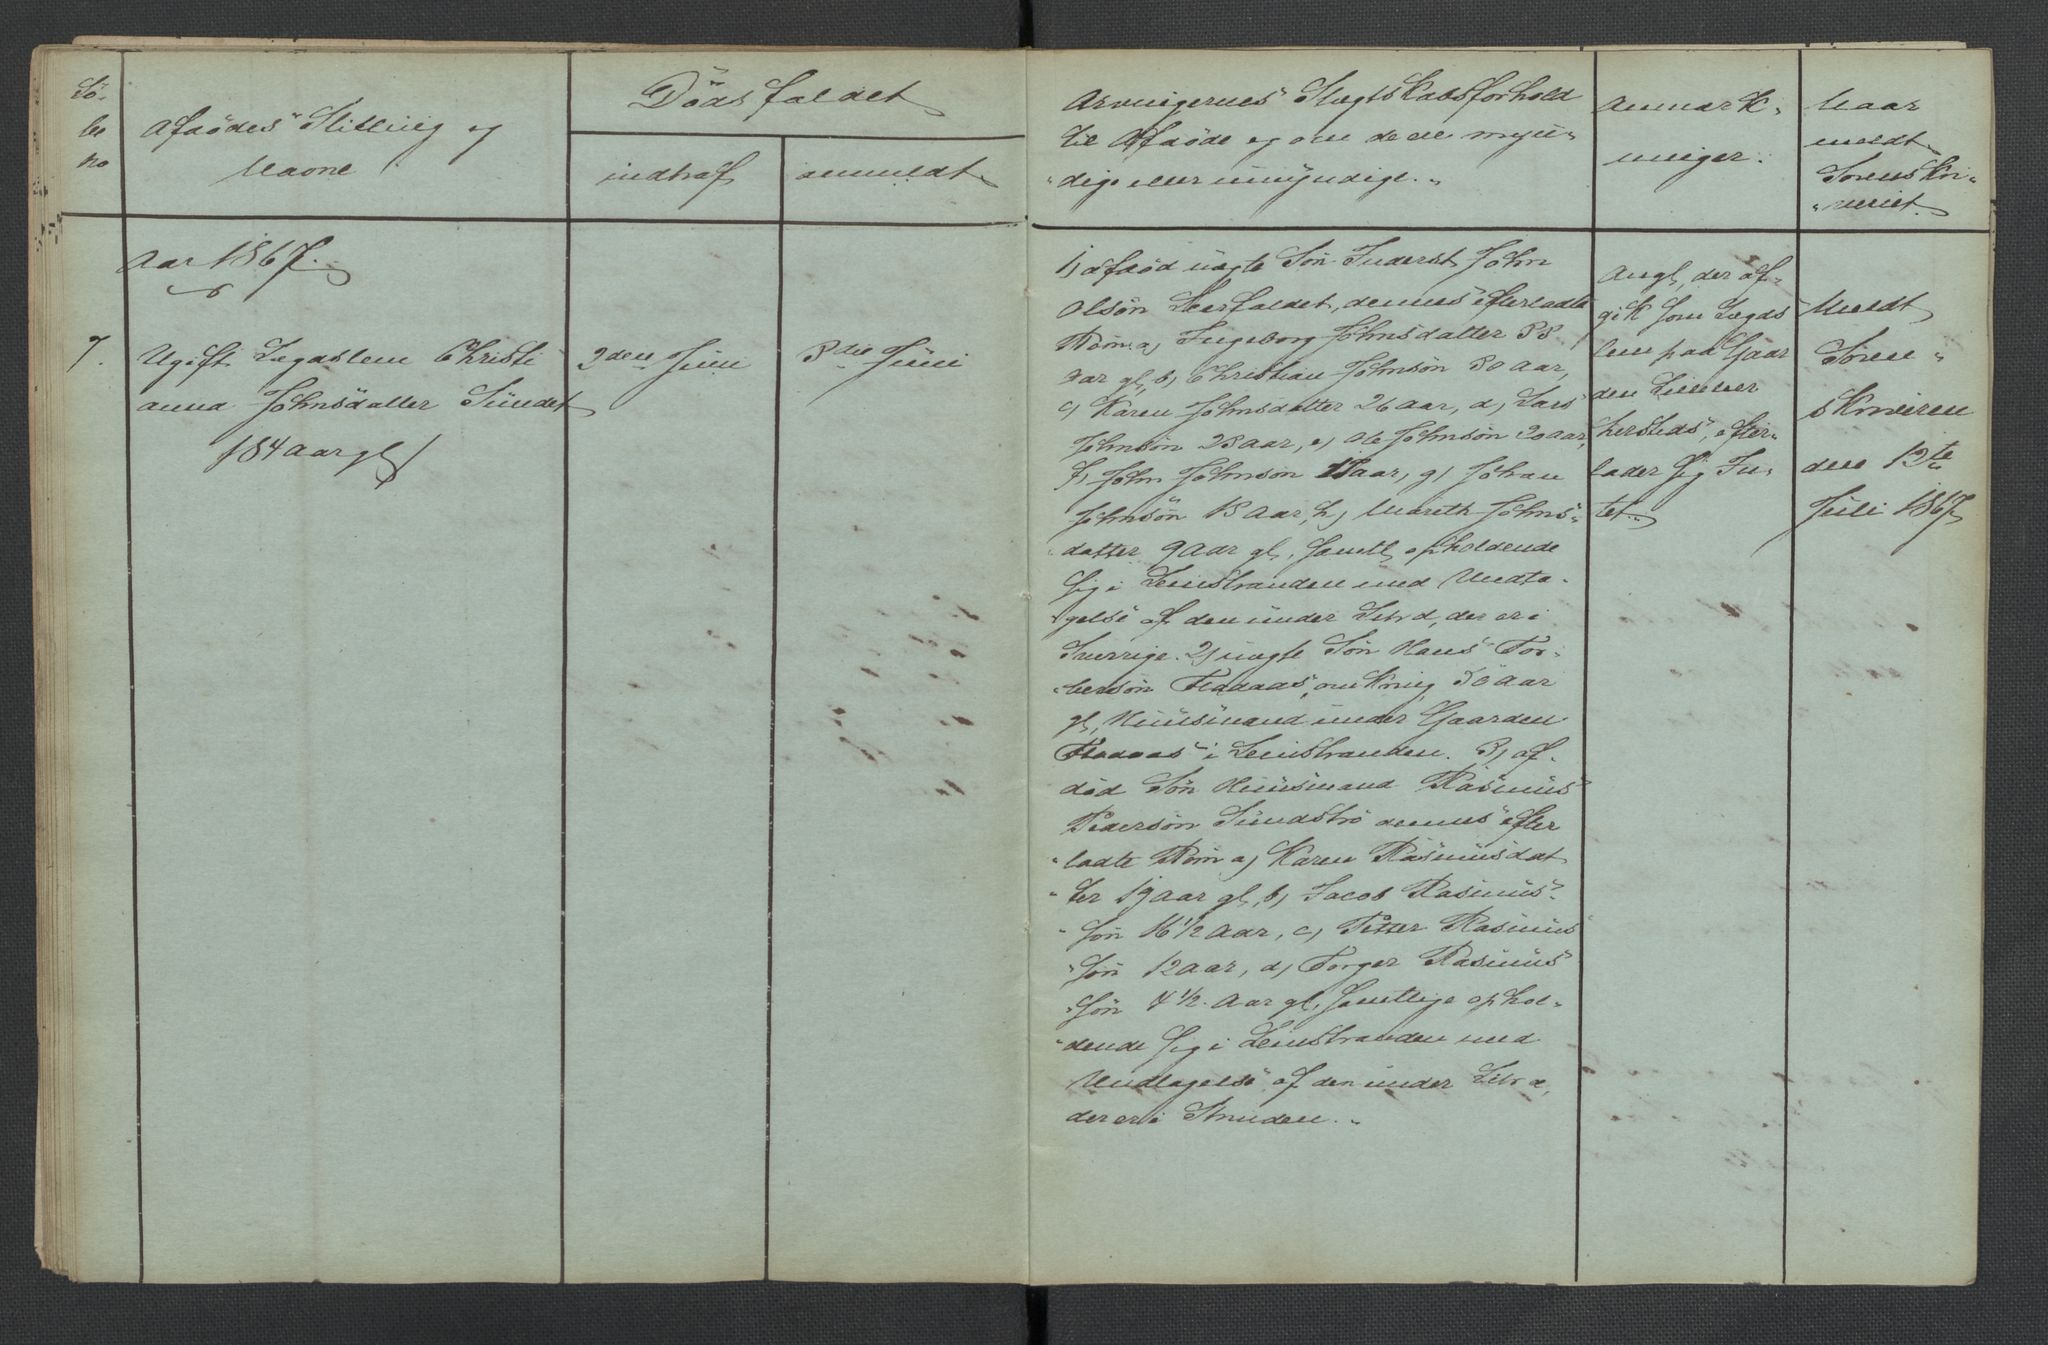 Lö-
be
no
Afdödes Stilling og
Navne
Dödsfaldet
indtraf
anmeldt.
Arvingernes Slægtskabsforhold
til Afdöde og om de ere myn-
dige eller umyndige.
Anmærk-
ninger.
Naar
meldt
Sorenskri-
veriet.
Aar 1867.
7.
Ugift Lægdslem Christi
anna Johnsdatter Sundet
84 aar gl
2den Juni
3die Juni
1) afdöd uægte Sön Inderst John
Olsön Leerfaldet, dennes efterladte
Börn a) Ingeborg Johnsdatter 33
aar gl, b) Christian Johnsön 30 aar,
c) Karen Johnsdatter 26 aar, d) Lars
Johnsön 23 aar, e) Ole Johnsön 20 aar,
f) John Johnsön aar, g) Johan
Johnsön 13 aar, h) Mareth Johns-
datter 9 aar gl, samtl opholdende
sig i Leinstranden med Undta-
gelse af den under Litr d, der er i
Sverrige. 2) uægte Sön Hans Tor-
bersön Flaaaas, omkring 50 aar
gl, Huusmand under Gaarden
Flaaaas i Leinstranden. 3) af-
död Sön Huusmand Rasmus
Pedersön Sundströ dennes efter
ladte Börn a) Karen Rasmusdat
ter 19 aar gl, b) Jacob Rasmus-
sön 16 1/2 aar, c) Petter Rasmus
sön 12 aar, d) Torger Rasmus
sön 4 1/2 aar gl, samtlige ophol-
dende sig i Leinstranden med
Undtagelse af den under Litr a,
der er i Strinden.
Angl, der af-
gik som Lægds
lem paa Gaar
den
hersteds, efter-
lader sig In-
tet.
Meldt
Soren-
skriveren
den 12te
Juli 1867.